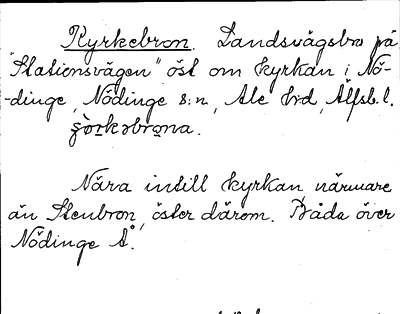 Kyrkebron. Landsvägsbro på
"Stationsvägen" öst om kyrkan i Nö-
-dinge, Nödinge s:n, Ale hd, Älfsb. l.
Nära intill kyrkan, närmare
än Stenbron, öster därom. Båda över
Nödinge Å.